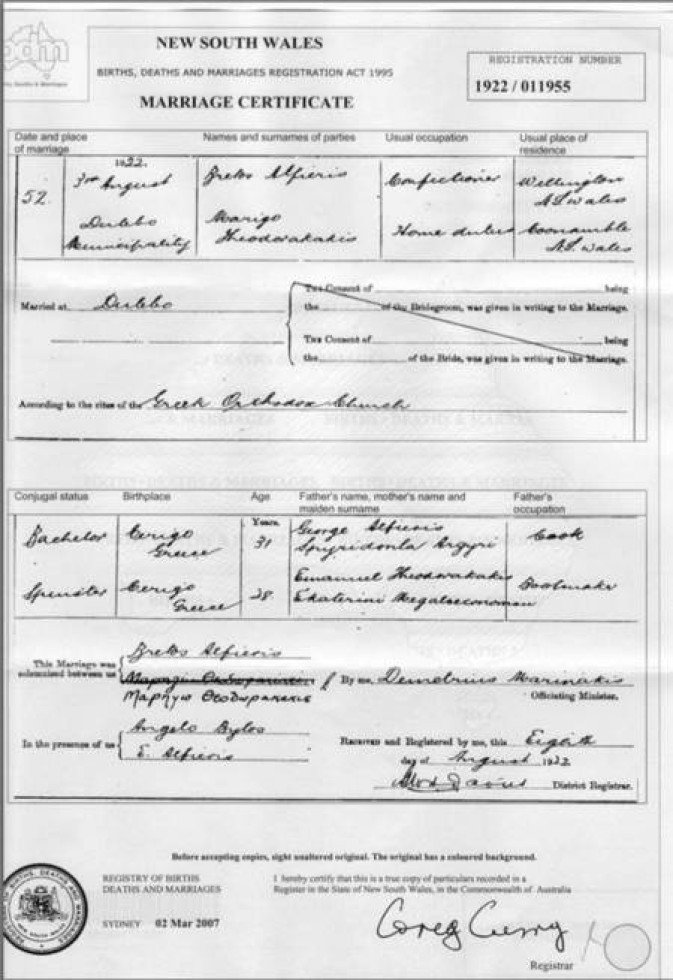 NEW SOUTH WALES
BIRTHS, DEATHS AND MARRIAGES REGISTRATION ACT 1995
MARRIAGE CERTIFICATE
REGISTRATION NUMBER
1922 / 011955
Date and place of marriage
Names and surnames of parties
Usual occupation
Usual place of residence
52.
1922.
3rd August
Dubbo
Municipality
Bretos Alfieris
Marigo
Theodorakakis
Confectioner
Home duties
Wellington
N.S. wales
Coonamble
N.S. wales
Married at Dubbo
THE Consent of being
the of the Bridegroom, was given in writing to the Marriage.
THE Consent of being
the of the Bride, was given in writing to the Marriage.
According to the rites of the Greek Orthodox Church
Conjugal status
Birthplace
Age
Father's name, mother's name and maiden surname
Father's occupation
Years.
Bachelor
Cerigo
Greece
31
George Alfieris
Argyri
Cook
Spinster
Cerigo
Greece
28
Emanuel Theodorakakis
Ekaterini Megaloeconomou
Bootmaker
This Marriage was solemnized between us
Bretos Alfieris
Μαρηγω Θεοδωρακακις
By me, Demetrius Marinakis
Officiating Minister.
In the presence of us
Angelo Bylos
E. Alfieris
RECEIVED and Registered by me, this Eighth
day of August 1922
District Registrar.
Before accepting copies, sight unaltered original. The original has a coloured background.
REGISTRY OF BIRTHS
DEATHS AND MARRIAGES
SYDNEY 02 Mar 2007
I hereby certify that this is a true copy of particulars recorded in a
Register in the State of New South Wales, in the Commonwealth of Australia
Greg Curry
Registrar